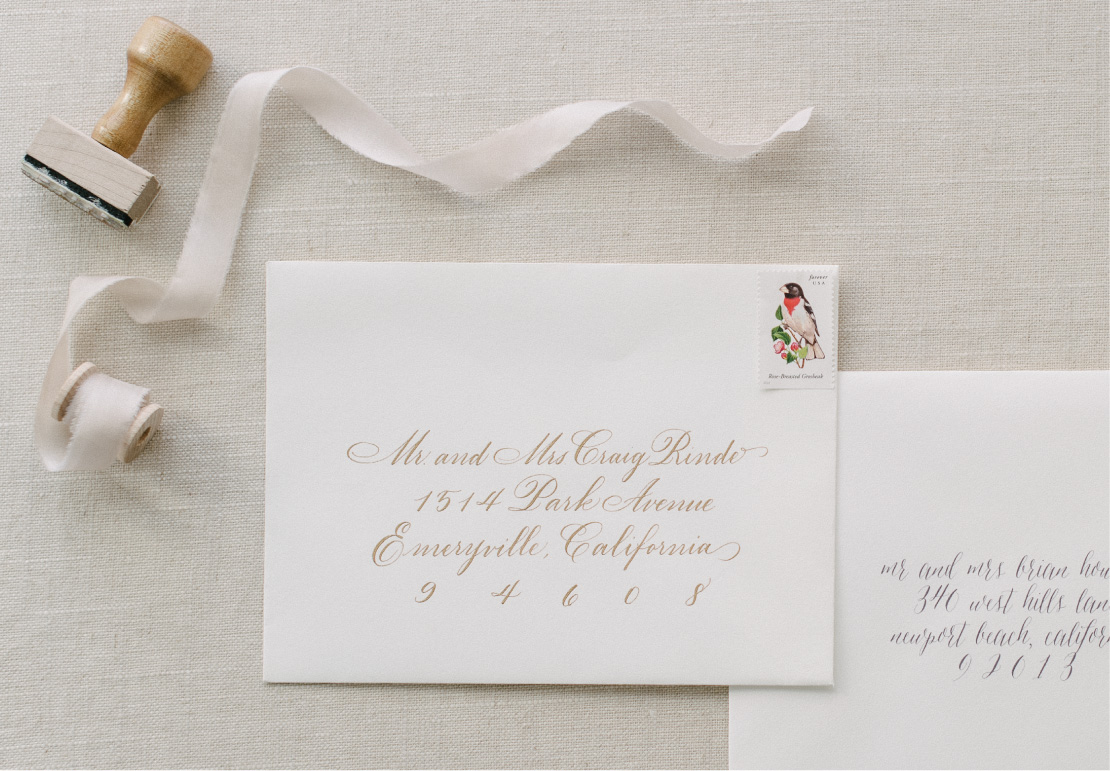 forever
USA
Rose-Breasted Grosbeak
Mr. and Mrs Craig Rindo
1514 Park Avenue
Emeryville, California
9 4 6 0 8
mr and mrs brian
340 west hills
newport beach,
9 2 0 1 3